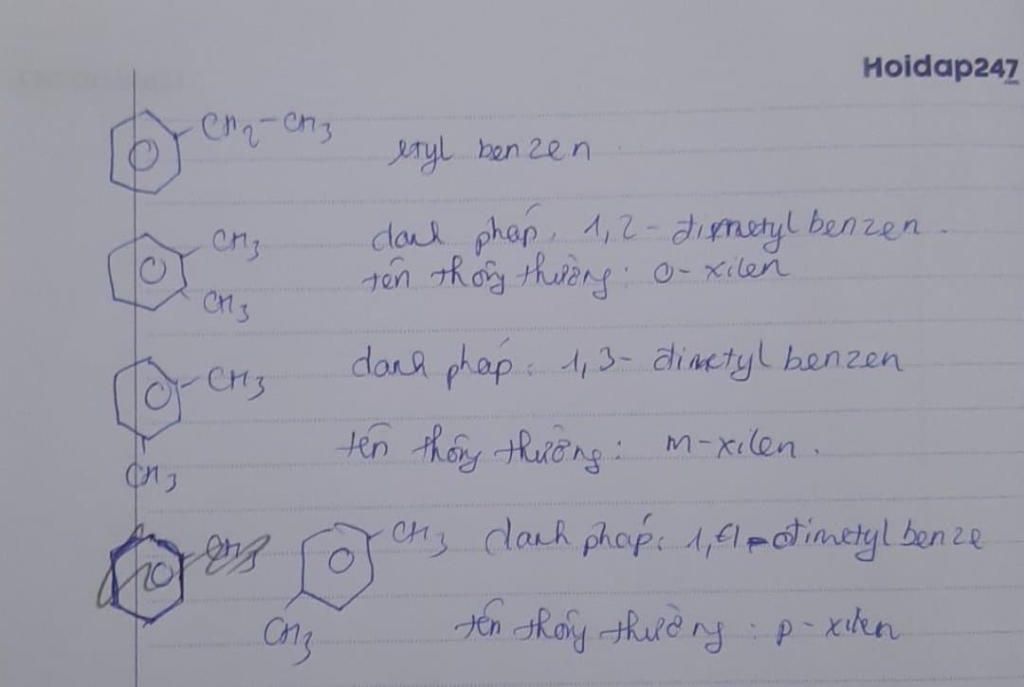 Hoidap247
CH2-CH3 etyl benzen
CH3 danh pháp. 1,2-đimetyl benzen.
CH3 tên thông thường: o-xilen
CH3 danh pháp: 1,3-đimetyl benzen
CH3 tên thông thường: m-xilen.
CH3 danh pháp: 1,4-đimetyl benze
CH3 tên thông thường: p-xilen